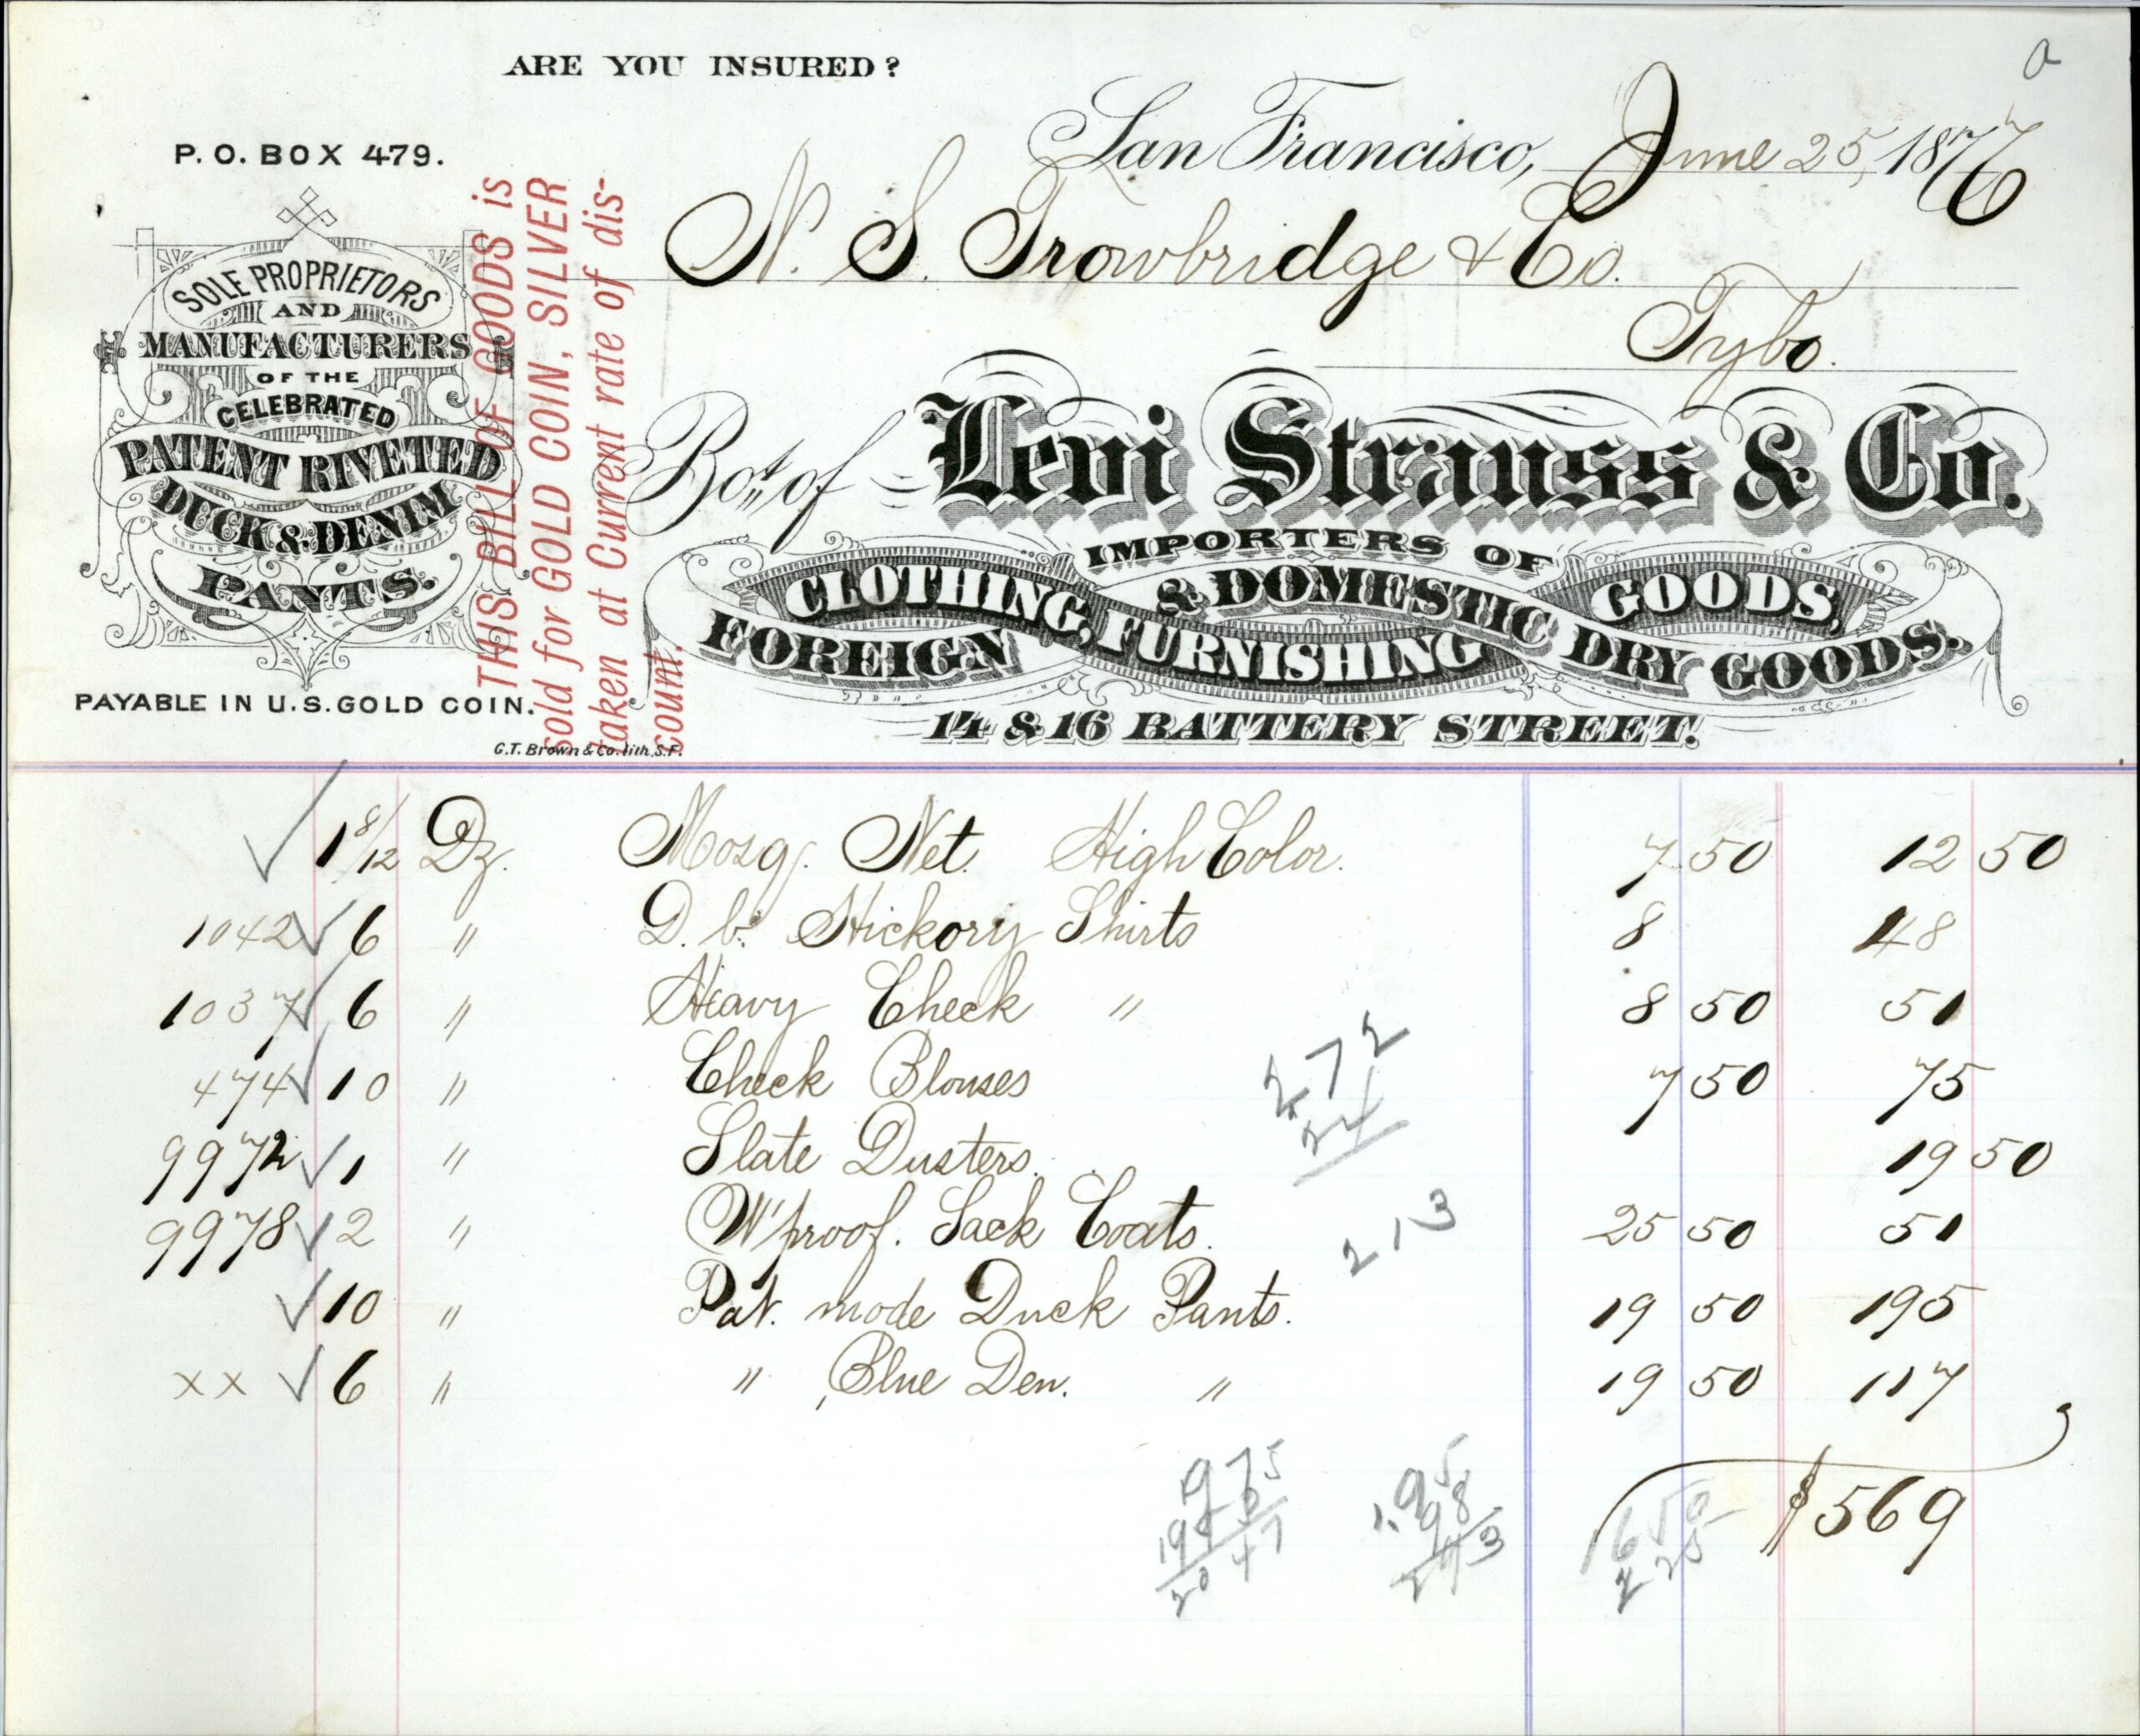 a
ARE YOU INSURED?
San Francisco, June 25, 1876
P. O. BOX 479.
N. S. Trowbridge & Co.
Tybo.
SOLE PROPRIETORS
AND
MANUFACTURERS
OF THE
CELEBRATED
PATENT RIVETED
DUCK & DENIM
PANTS.
PAYABLE IN U.S. GOLD COIN.
THIS BILL OF GOODS is
sold for GOLD COIN, SILVER
taken at Current rate of dis-
count.
Bot. of Levi Strauss & Co.
IMPORTERS OF
CLOTHING, FURNISHING GOODS,
FOREIGN & DOMESTIC DRY GOODS.
14 & 16 BATTERY STREET.
G.T. Brown & Co. lith. S.F.
1 8/12 Dz. Mosq. Net. High Color. 7 50 12 50
1042 6 " D. b. Hickory Shirts 8 48
1037 6 " Heavy Check " 8 50 51
474 10 " Check Blouses 7 50 75
9972 1 " Slate Dusters. 19 50
9978 2 " W'proof. Sack Coats. 25 50 51
10 " Pat. mode Duck Pants. 19 50 195
xx 6 " " Blue Den. " 19 50 117
$569
272
213